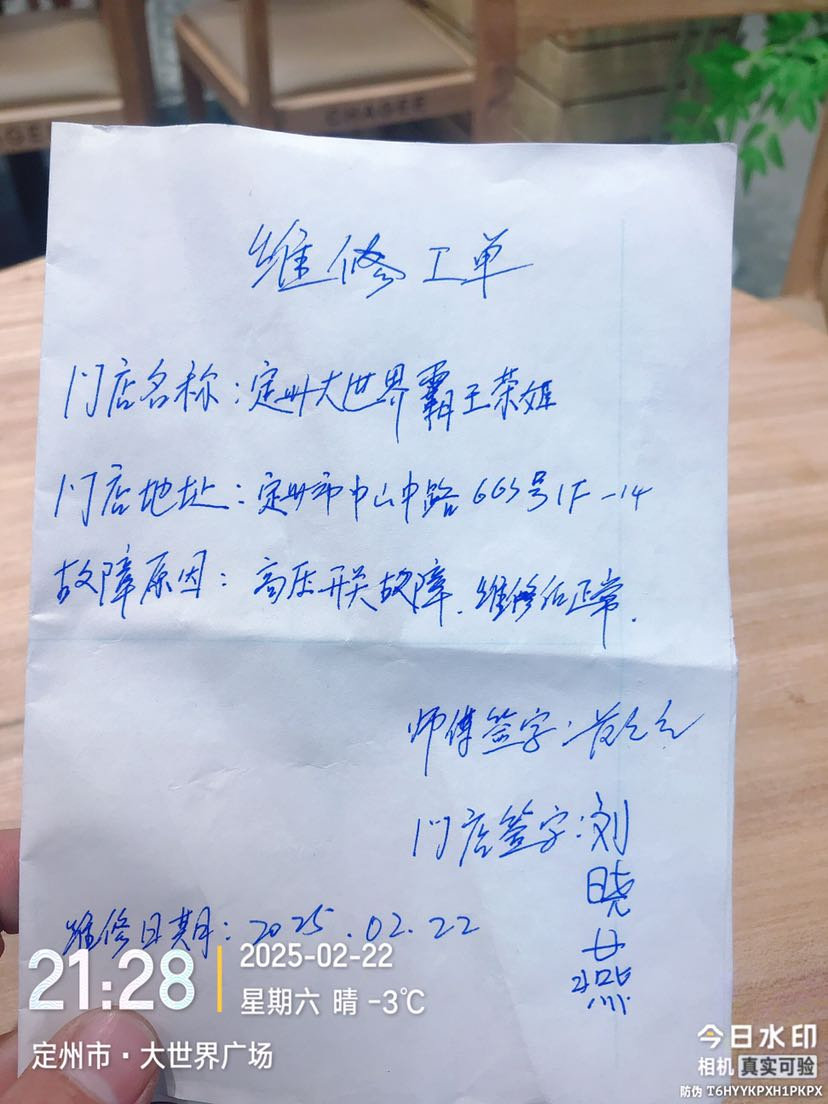 CHAGEE
维修工单
门店名称:定州大世界霸王茶姬
门店地址:定州市中山中路665号1F-14
故障原因:高压开关故障.维修后正常.
师傅签字:
门店签字:刘晓燕
维修日期:2025.02.22
21:28
2025-02-22
星期六 晴 -3℃
定州市·大世界广场
今日水印
相机 真实可验
防伪 T6HYYKPXH1PKPX